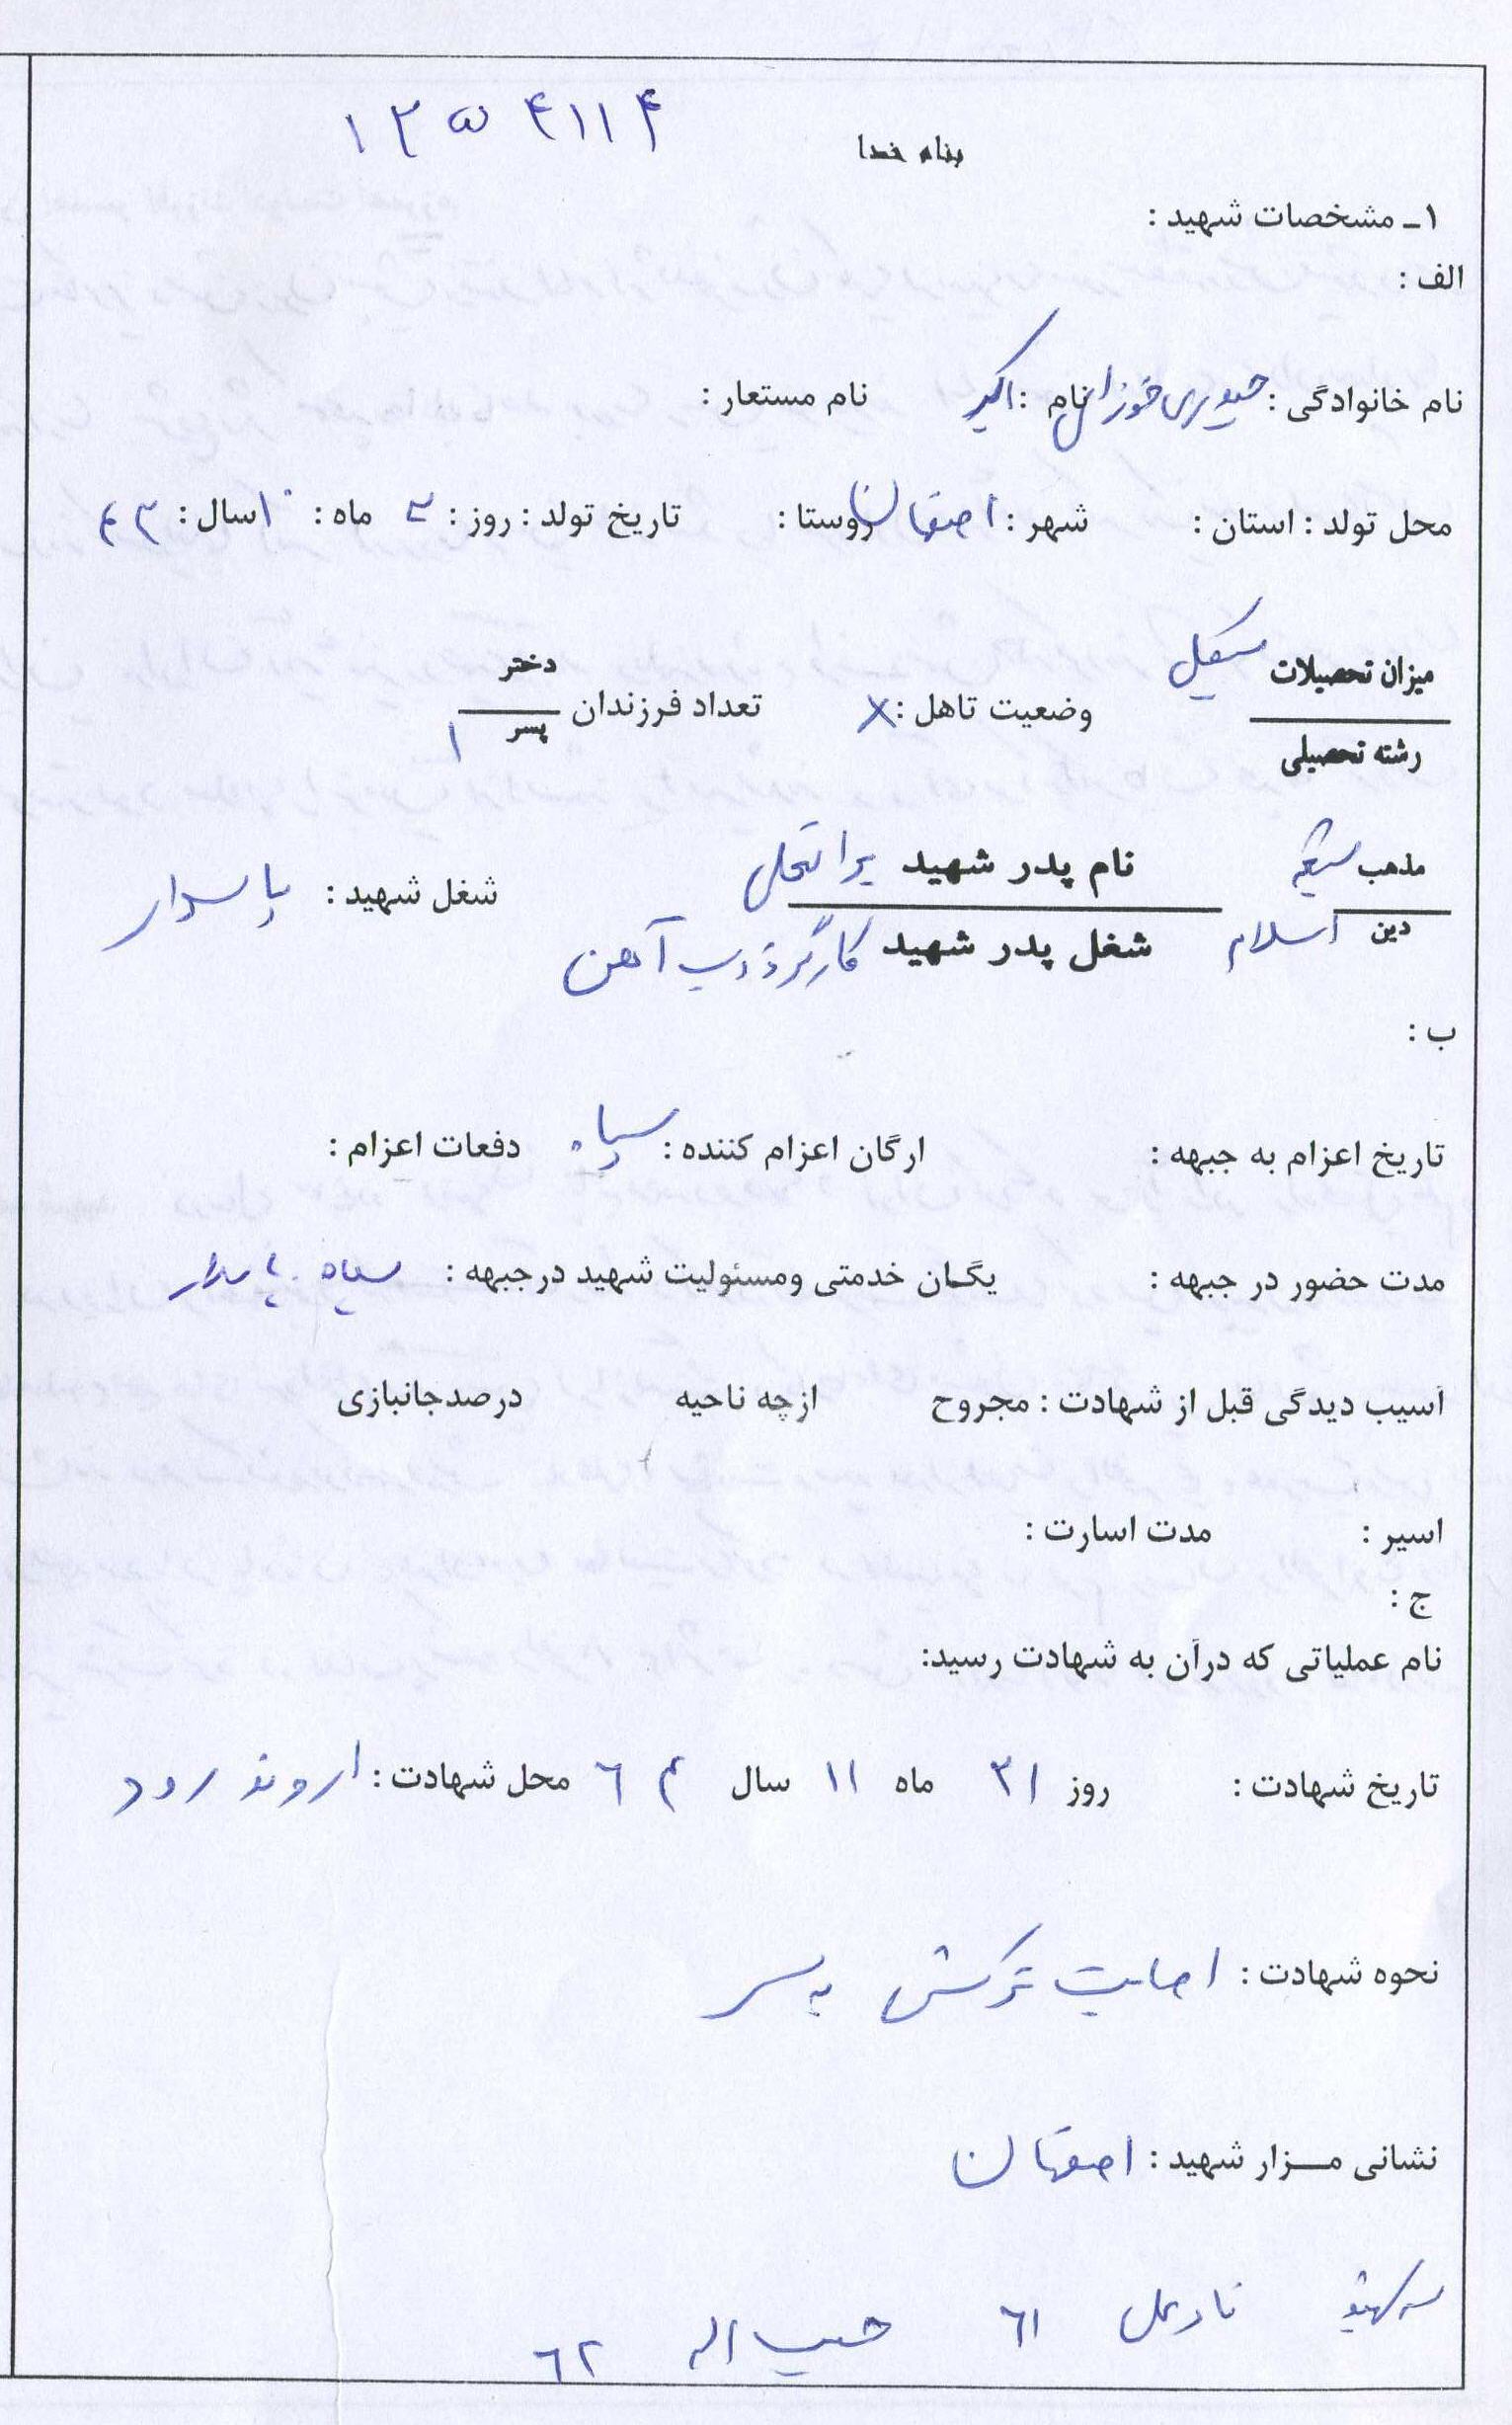 ۱۳۵۴۱۱۴
بنام خدا
۱ـ مشخصات شهید :
الف :
نام خانوادگی : حیدری خوزانی نام : اکبر نام مستعار :
محل تولد : استان : شهر : اصفهان روستا : تاریخ تولد : روز : ۳ ماه : ۱۰ سال : ۴۳
میزان تحصیلات سیکل
رشته تحصیلی
وضعیت تاهل : X تعداد فرزندان دختر
پسر ۱
مذهب شیعه نام پدر شهید براتعلی شغل شهید : پاسدار
دین اسلام شغل پدر شهید کارگر ذوب آهن
ب :
تاریخ اعزام به جبهه : ارگان اعزام کننده : سپاه دفعات اعزام :
مدت حضور در جبهه : یگان خدمتی ومسئولیت شهید درجبهه : سپاه . پاسدار
آسیب دیدگی قبل از شهادت : مجروح ازچه ناحیه درصدجانبازی
اسیر : مدت اسارت :
ج :
نام عملیاتی که درآن به شهادت رسید:
تاریخ شهادت : روز ۲۱ ماه ۱۱ سال ۶۴ محل شهادت : اروند رود
نحوه شهادت : اصابت ترکش به سر
نشانی مـــزار شهید : اصفهان
سه شهید ۶۱ حبیب اله ۶۲